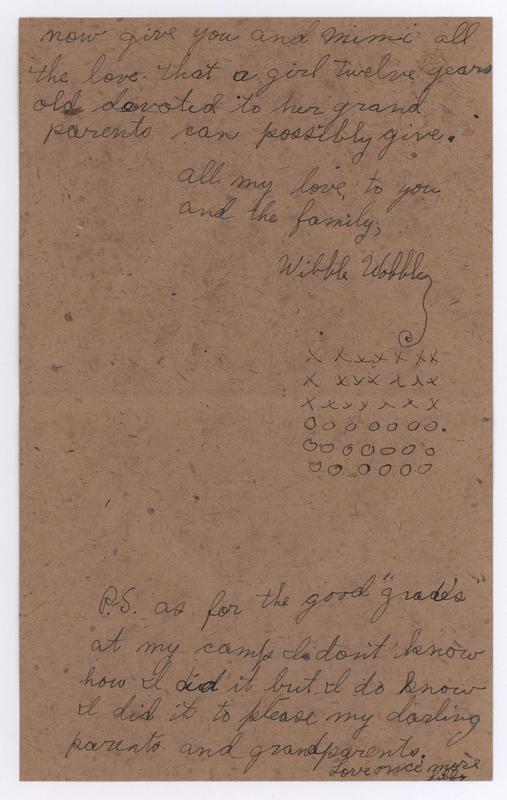 now give you and Mimi all
the love that a girl twelve years
old devoted to her grand
parents can possibly give.
all my love to you
and the family,
Wibble Wobble
x x x x x x x
x x x x x x x
x x x x x x x
o o o o o o o.
o o o o o o o
o o o o o o
P.S. as for the good "grades"
at my camp I don't know
how I did it but I do know
I did it to please my darling
parents and grandparents.
Love once more